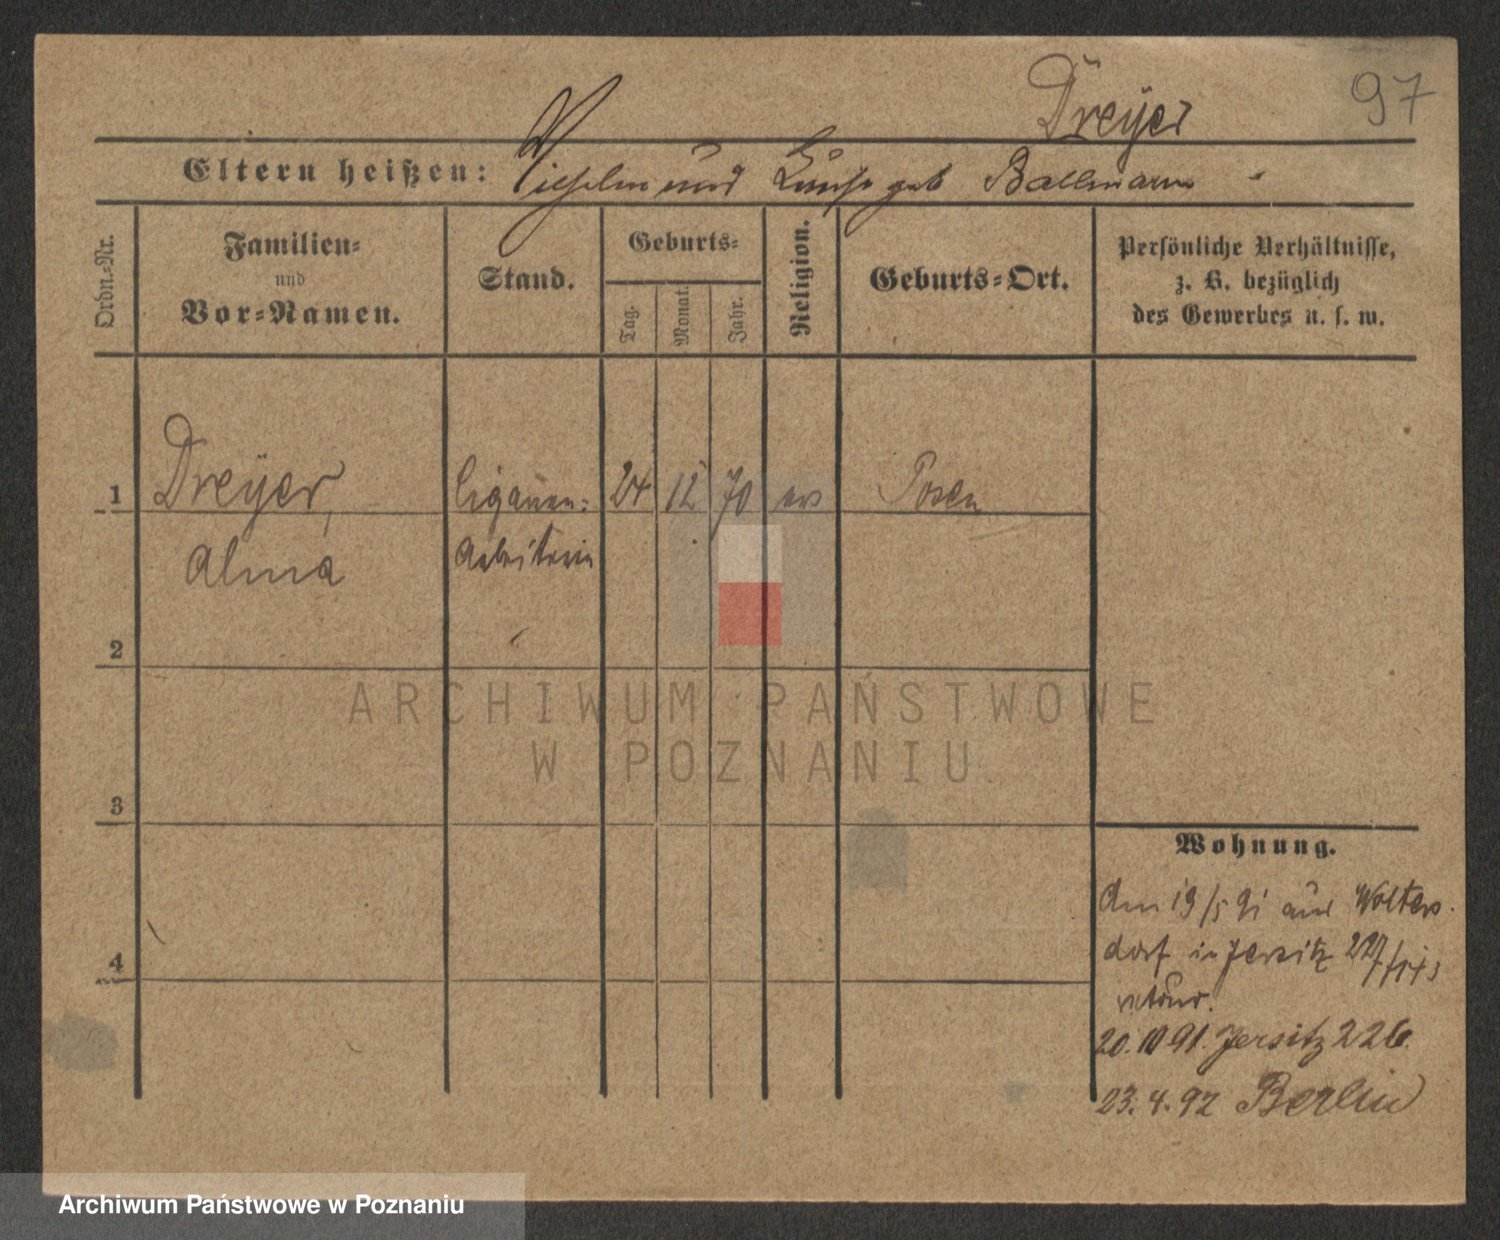 Dreÿer
97
Eltern heißen: Wilhelm und Luise geb Ballmann
Ordn.-Nr.
Familien-
und
Vor-Namen.
Stand.
Geburts-
Tag.
Monat.
Jahr.
Religion.
Geburts-Ort.
Persönliche Verhältnisse,
z. B. bezüglich
des Gewerbes u. s. w.
1
Dreÿer,
Alma
Cigarren-
Arbeiterin
24
12
70
ev
Posen
2
3
4
ARCHIWUM PAŃSTWOWE
W POZNANIU
Wohnung.
Am 19/5 91 aus Wolters-
dorf in Jersitz 227/143
retour.
20.10 91. Jersitz 226.
23. 4. 92 Berlin
Archiwum Państwowe w Poznaniu